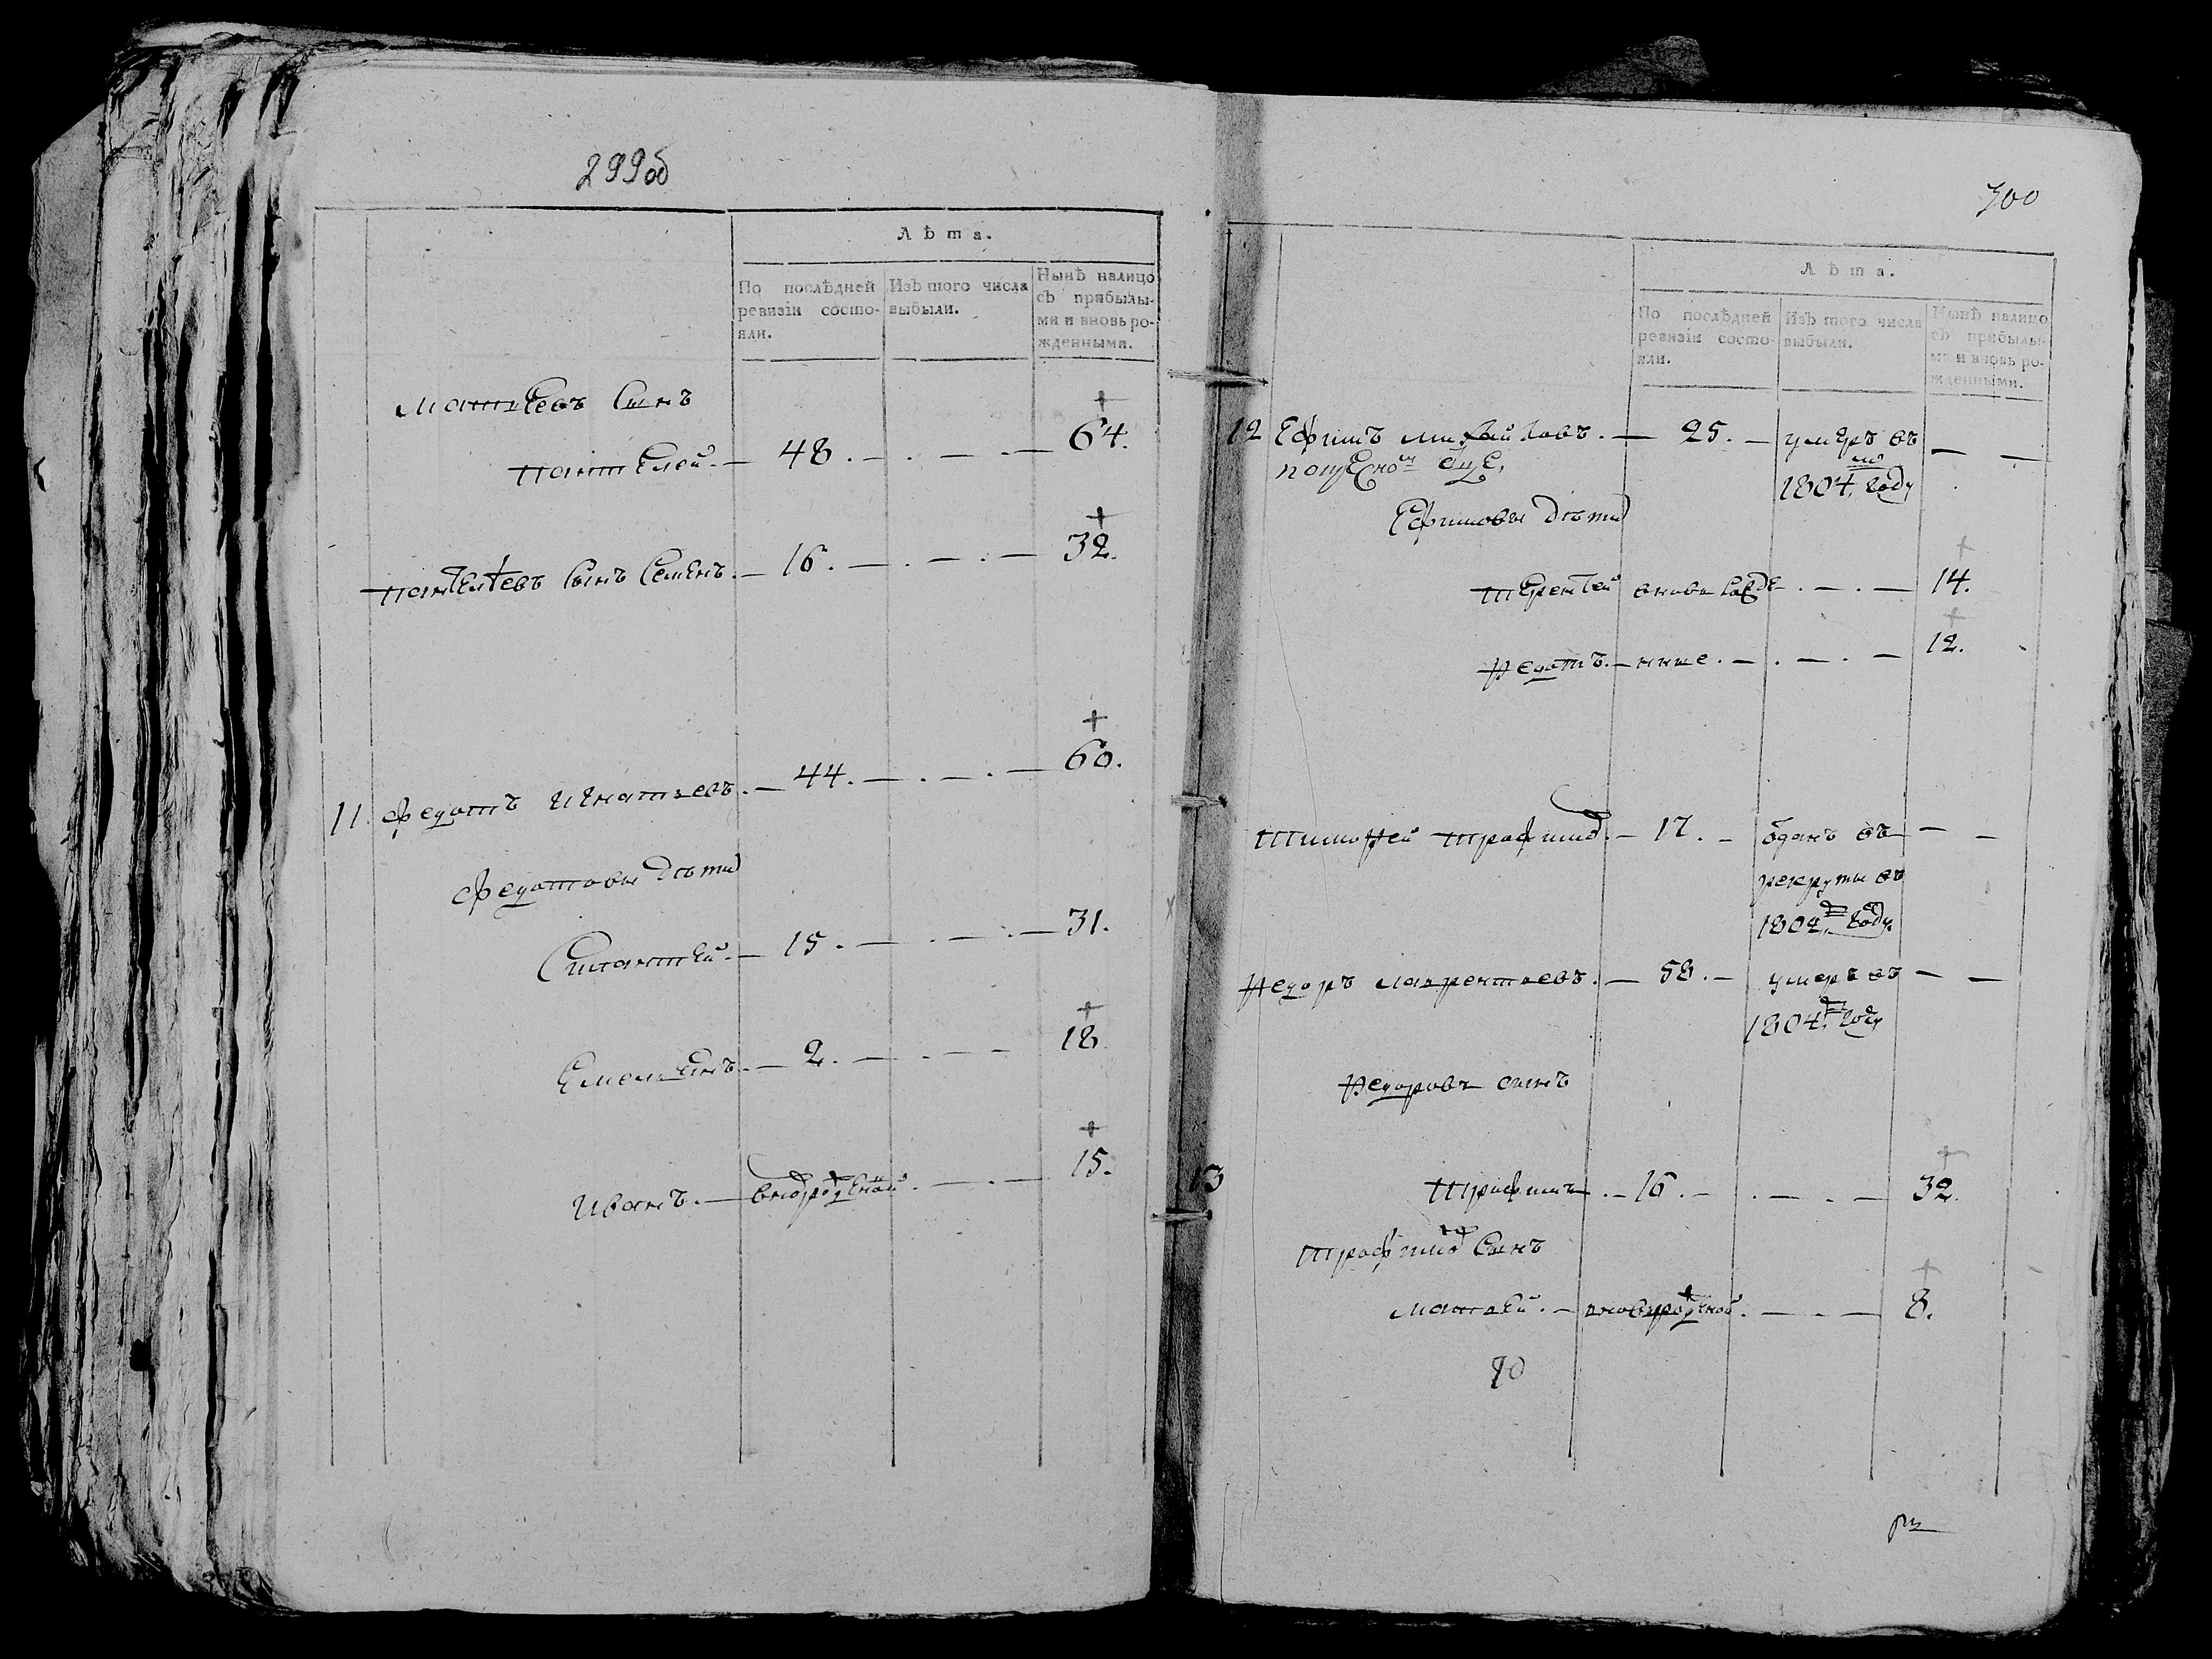 299об
Лѣта.
По послѣдней ревизіи состояли.
Изъ того числа выбыли.
Нынѣ налицо съ прибылыми и вновь рожденными.
Матвеевъ Сынъ
пантелей. — 48. — . — . — 64.
пантелѣевъ Сынъ Семенъ. — 16. — . — . — 32.
11. Федотъ Игнатьевъ. — 44. — . — . — 60.
Федотовы дѣти
Силантей. — 15. — . — . — 31.
Емельянъ. — 2. — . — — 18
Иванъ. — вновьрожденной. — . — 15.
300
Лѣта.
По послѣдней ревизіи состояли.
Изъ того числа выбыли.
Нынѣ налицо съ прибылыми и вновь рожденными.
12 Ефимъ михайловъ. — 25. — умеръ въ — —
1804м году
Ефимовы дѣти
терентей — . — . — 14.
Федотъ. — ниже. — . — . — 12.
Тимофей трафимовъ. — 17. — отданъ въ — —
рекруты въ
1802м году
Федоръ лаврентьевъ. — 58. — умеръ въ — —
1804м году
Федоровъ сынъ
13 трафимъ. — 16. — . — . — 32.
трафимовъ Сынъ
матвей. — вновьрожденной. — . — 8.